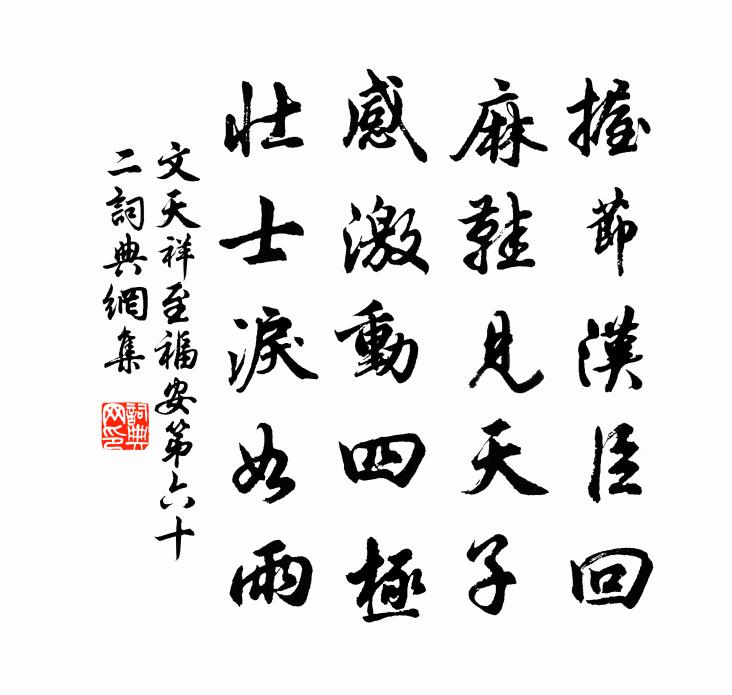 握節漢臣回
麻鞋見天子
感激動四極
壯士淚如雨
文天祥至福安第六十
二詞典網集
詞典网印